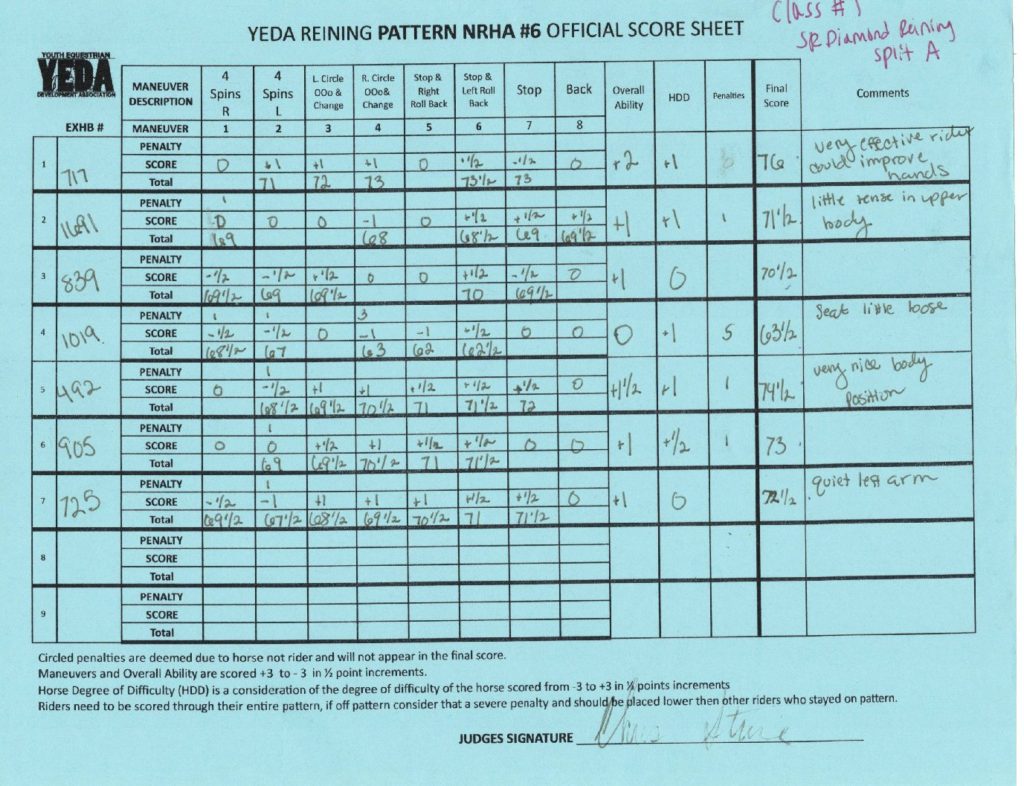 Class #1
YEDA REINING PATTERN NRHA #6 OFFICIAL SCORE SHEET
SR Diamond Reining
Split A
YOUTH EQUESTRIAN
YEDA
DEVELOPMENT ASSOCIATION
EXHB # MANEUVER DESCRIPTION 4 Spins R 4 Spins L L. Circle OOo & Change R. Circle OOo& Change Stop & Right Roll Back Stop & Left Roll Back Stop Back Overall Ability HDD Penalties Final Score Comments
MANEUVER 1 2 3 4 5 6 7 8
PENALTY
1 717 SCORE 0 +1 +1 +1 0 +1/2 -1/2 0 +2 +1 76 very effective rider could improve hands
Total 71 72 73 73 1/2 73
PENALTY 1
2 1691 SCORE 0 0 0 -1 0 +1/2 +1/2 +1/2 +1 +1 1 71 1/2 little tense in upper body
Total 69 68 68 1/2 69 69 1/2
PENALTY
3 839 SCORE -1/2 -1/2 +1/2 0 0 +1/2 -1/2 0 +1 0 70 1/2
Total 69 1/2 69 69 1/2 70 69 1/2
PENALTY 1 1 3
4 1019 SCORE -1/2 -1/2 0 -1 -1 +1/2 0 0 0 +1 5 63 1/2 Seat little loose
Total 68 1/2 67 63 62 62 1/2
PENALTY 1
5 492 SCORE 0 -1/2 +1 +1 +1/2 +1/2 +1/2 0 +1 1/2 +1 1 74 1/2 very nice body position
Total 68 1/2 69 1/2 70 1/2 71 71 1/2 72
PENALTY 1
6 905 SCORE 0 0 +1/2 +1 +1/2 +1/2 0 0 +1 +1/2 1 73
Total 69 69 1/2 70 1/2 71 71 1/2
PENALTY 1
7 725 SCORE -1/2 -1 +1 +1 +1 +1/2 +1/2 0 +1 0 72 1/2 quiet leg arm
Total 69 1/2 67 1/2 68 1/2 69 1/2 70 1/2 71 71 1/2
PENALTY
8 SCORE
Total
PENALTY
9 SCORE
Total
Circled penalties are deemed due to horse not rider and will not appear in the final score.
Maneuvers and Overall Ability are scored +3 to - 3 in ½ point increments.
Horse Degree of Difficulty (HDD) is a consideration of the degree of difficulty of the horse scored from -3 to +3 in ½ points increments
Riders need to be scored through their entire pattern, if off pattern consider that a severe penalty and should be placed lower then other riders who stayed on pattern.
JUDGES SIGNATURE